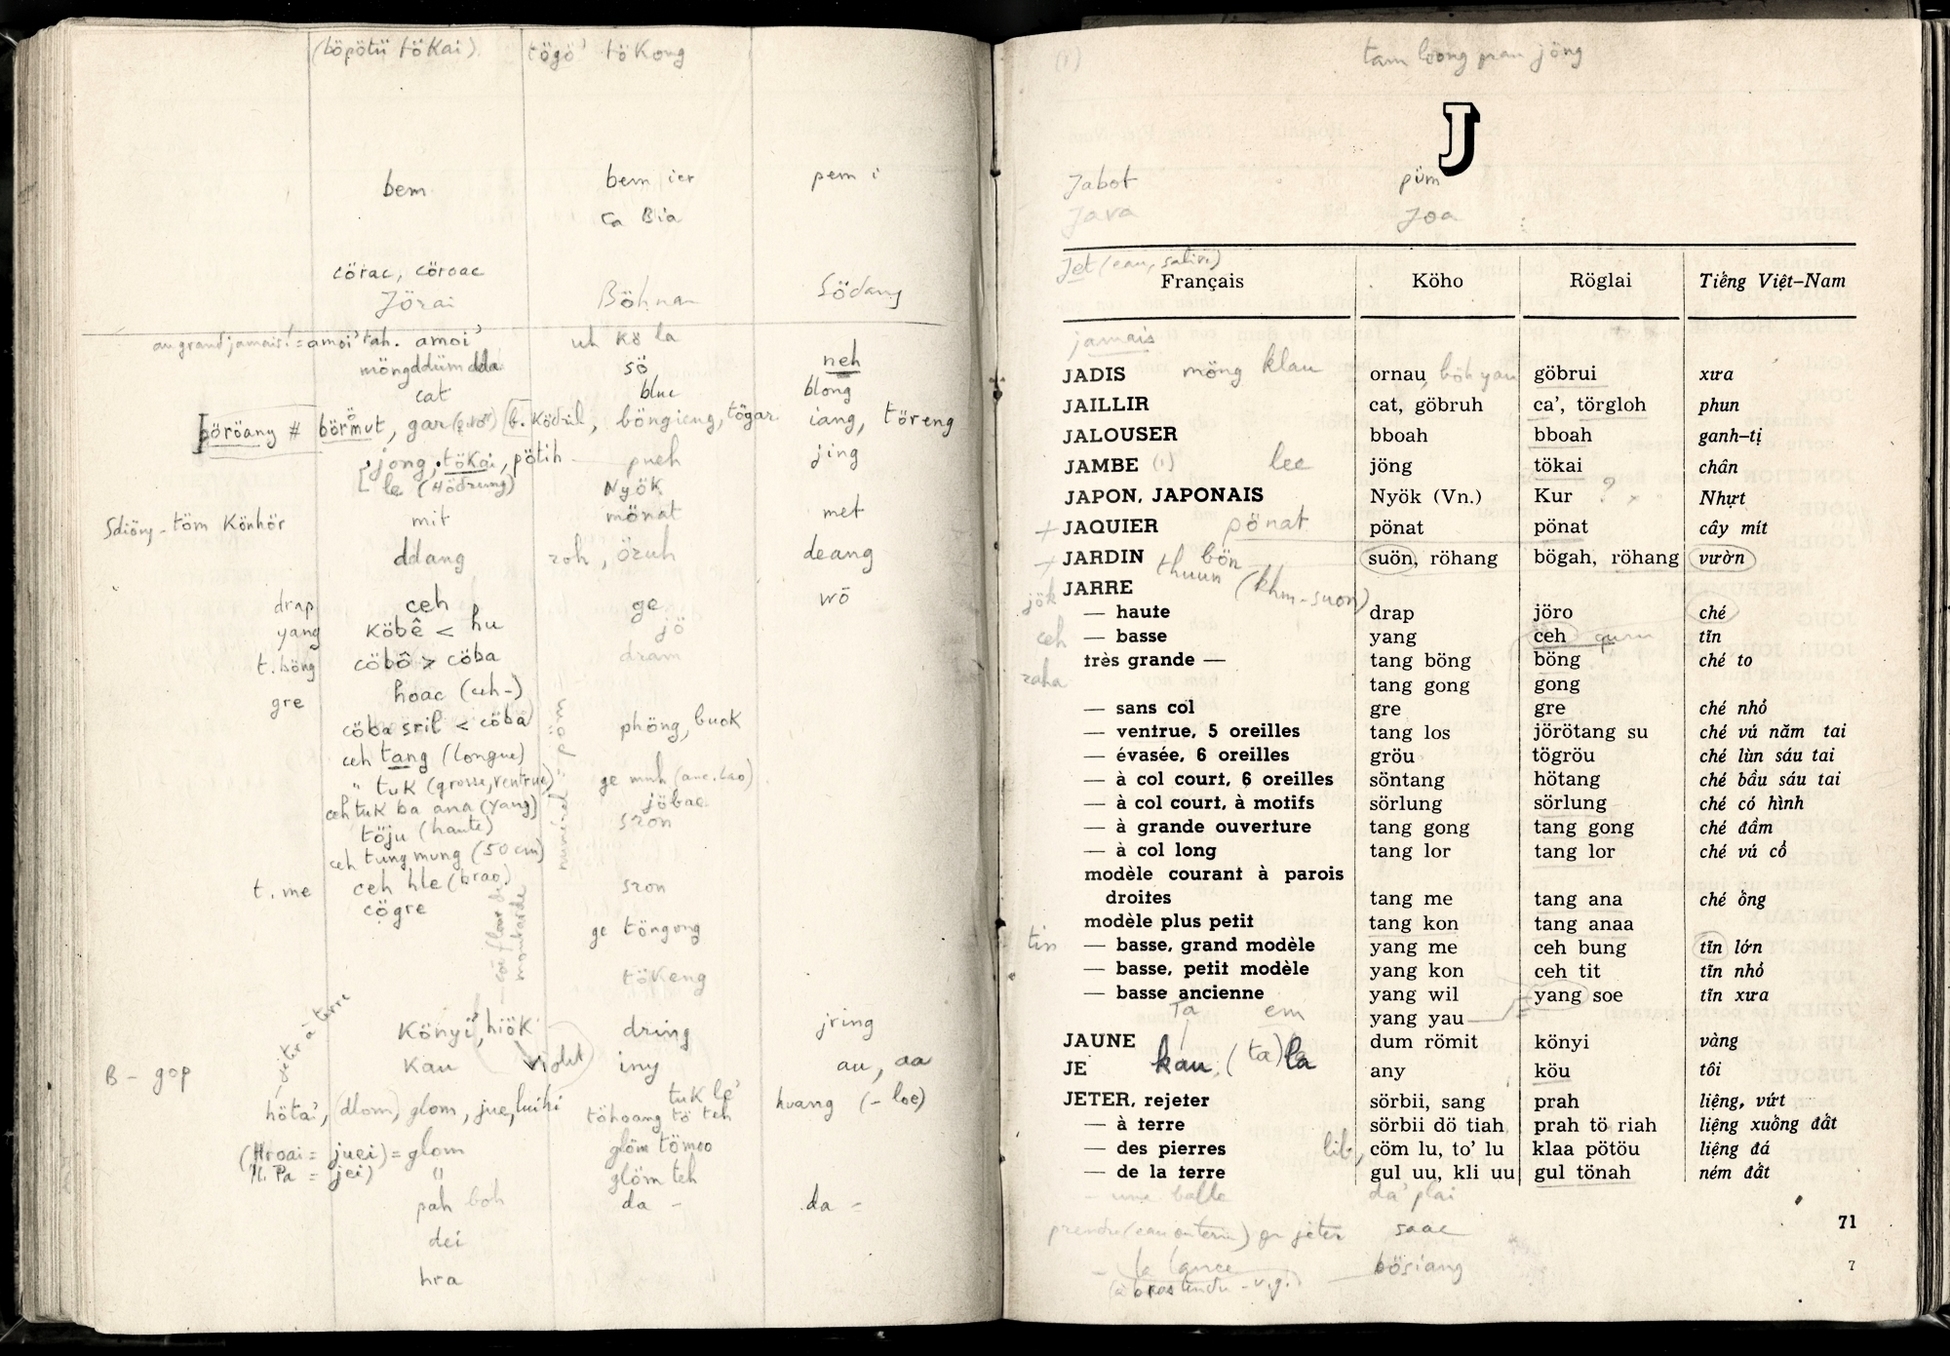 (böpötü tökai) tögö' tökong
bem bem ier pem i
ca Bia
cörac, cöroac
Jörai Böhnar Södang
au grand jamais! = amoi' tah. amoi' uh kö la
möngddüm dda sö neh
cat bluc blong
böröany # börmut, gar b. Ködril, böngieng, tögar iang, töreng
jong, tökai, pötih pueh jing
le (Hödrung) Nyök
Sdiöny - töm Könhör mit mönat met
ddang roh, öruh deang
drap ceh ge wö
yang köbê < hu jö
t. böng cöbô > cöba dram
gre hoac (ceh-)
cöba sril < cöba phöng, buok
ceh tang (longue)
" tuk (grosse, ventrue) ge mnh (anc. Lao)
ceh tuk ba ana (yang) jöbae
töju (haute) sron
ceh tung mung (50 cm)
t. me ceh hle (brao) sron
cögre
ge töngong
tökeng
Könyi', hiök dring jring
B - gop kau violet iny au, aa
jeter à terre
höta', (dlom) glom, jue, luihi tuk le'
töhoang tö teh huang (- loe)
(Hroai = juei) = glom glöm tömoo
H. Pa = jei) " glöm teh
pah boh da - da -
dei
hra
(1) tam loong pran jöng
J
Jabot püm
Java Joa
Jet (eau, salive)
Français Köho Röglai Tiếng Việt-Nam
jamais
JADIS möng klau ornau, böh yau göbrui xưa
JAILLIR cat, göbruh ca', törgloh phun
JALOUSER bboah bboah ganh-tị
JAMBE (1) lee jöng tökai chân
JAPON, JAPONAIS Nyök (Vn.) Kur ? Nhựt
+ JAQUIER pönat pönat pönat cây mít
+ JARDIN bön suön, röhang bögah, röhang vườn
thuun (khm-suon)
jök JARRE
— haute drap jöro ché
ceh — basse yang ceh tĩn
très grande — tang böng böng ché to
raha tang gong gong
— sans col gre gre ché nhỏ
— ventrue, 5 oreilles tang los jörötang su ché vú năm tai
— évasée, 6 oreilles gröu tögröu ché lùn sáu tai
— à col court, 6 oreilles söntang hötang ché bầu sáu tai
— à col court, à motifs sörlung sörlung ché có hình
— à grande ouverture tang gong tang gong ché đầm
— à col long tang lor tang lor ché vú cổ
modèle courant à parois
droites tang me tang ana ché ông
modèle plus petit tang kon tang anaa
tin — basse, grand modèle yang me ceh bung tĩn lớn
— basse, petit modèle yang kon ceh tit tĩn nhỏ
— basse ancienne yang wil yang soe tĩn xưa
Ta em yang yau
JAUNE dum römit könyi vàng
JE kau, (ta) la any köu tôi
JETER, rejeter sörbii, sang prah liệng, vứt
— à terre sörbii dö tiah prah tö riah liệng xuồng đất
— des pierres lib, cöm lu, to' lu klaa pötöu liệng đá
— de la terre gul uu, kli uu gul tönah ném đất
- une balle da' plai
71
prendre (eau ou terre) pr jeter saac
- la lance bösiang
7
(à bras tendu - v.g.)